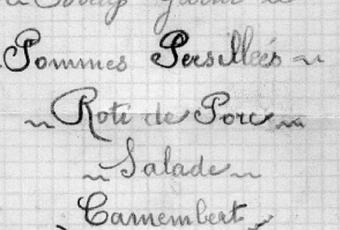 garni
Pommes Persillées
Roti de Porc
Salade
Camembert